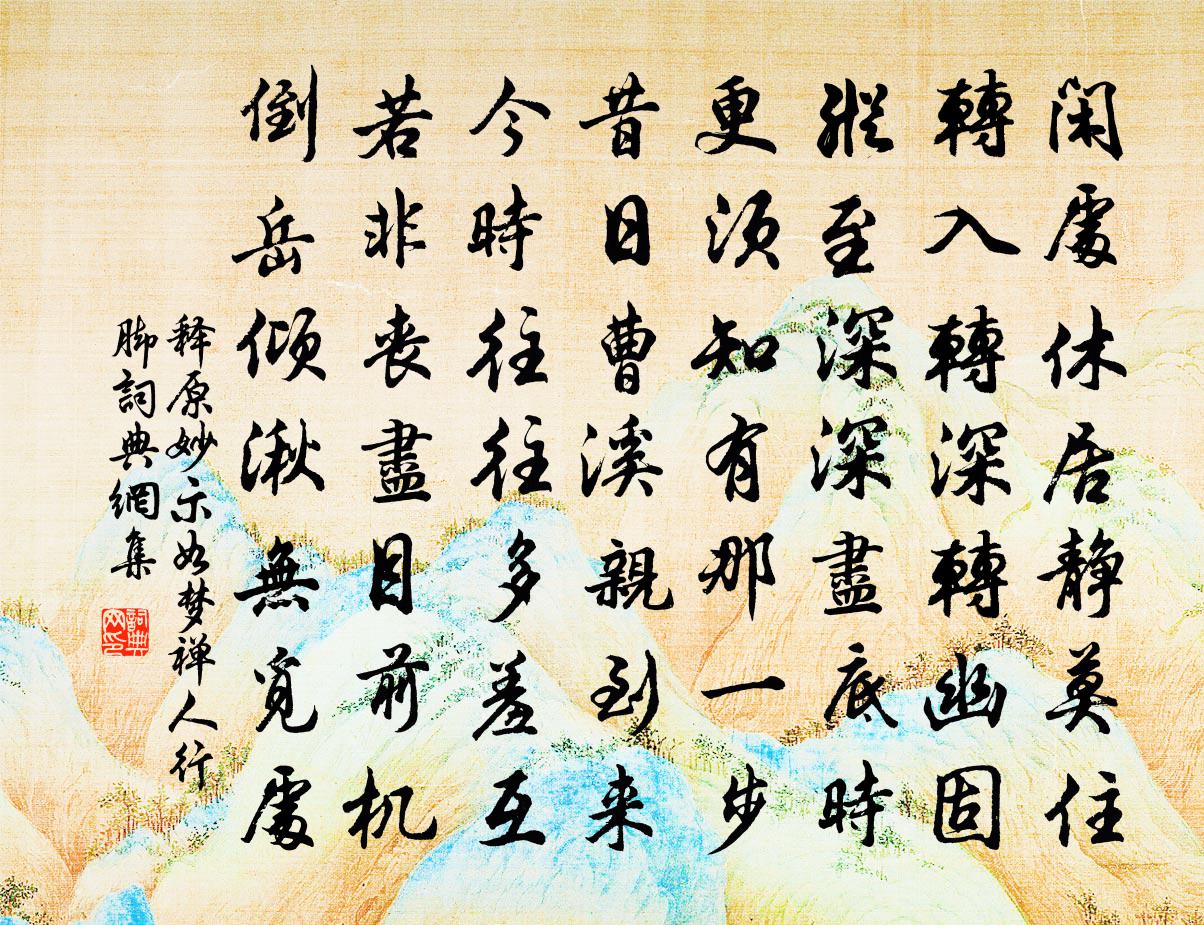 閑處休居静莫住
轉入轉深轉幽固
縱至深深盡底時
更須知有那一步
昔日曹溪親到来
今時往往多差互
若非丧盡目前机
倒岳倾湫無覓處
释原妙示如梦禅人行
脚詞典網集
詞典网印